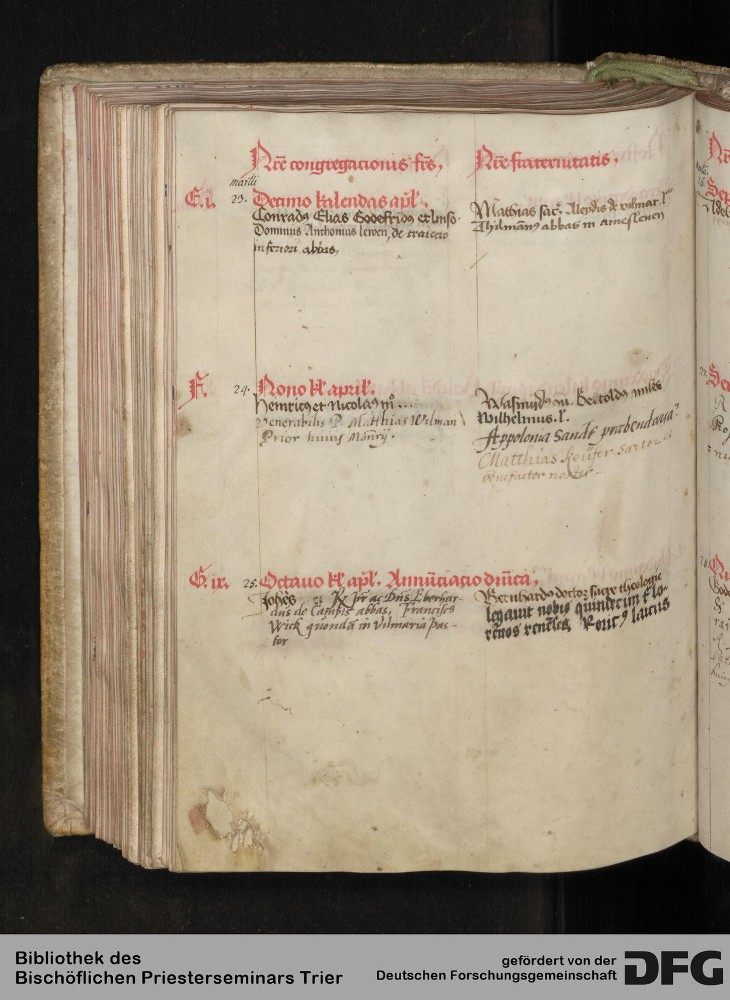 Nr̄e congregacionis fr̄es,
Nr̄e fraternitatis.
martii
E. i. 23. Decimo kalendas apl̄.
Conradꝰ Elias Godefridꝰ
Dominus Anthonius lewen, de traiecto
inferiori abbas,
Mathias sac̄. Aleydis de vilmar. l
Thilmānꝰ abbas in
F. 24. Nono kl̄ april.
Henricꝰ et Nicolaꝰ
Venerabilis P. Matthias Wilman
Prior huius Mōnrÿ.
Bertoldꝰ miles
Wilhelmus. l.
Appolonia Sande præbendaria
Matthias Keüfer sartor
benefactor noster
G. ix. 25. Octauo kl̄ apl̄. Annūciacio dn̄ica,
Johēs R. p̄r ac Dn̄s Eberhar-
dus de Cāpis abbas, Franciscꝰ
Wick quondā in Vilmaria pas-
tor
Bernhardꝰ doctor sacre theologie
legauit nobis quindecim flo-
renos renēses, laicus
Bibliothek des
Bischöflichen Priesterseminars Trier
gefördert von der
Deutschen Forschungsgemeinschaft
DFG